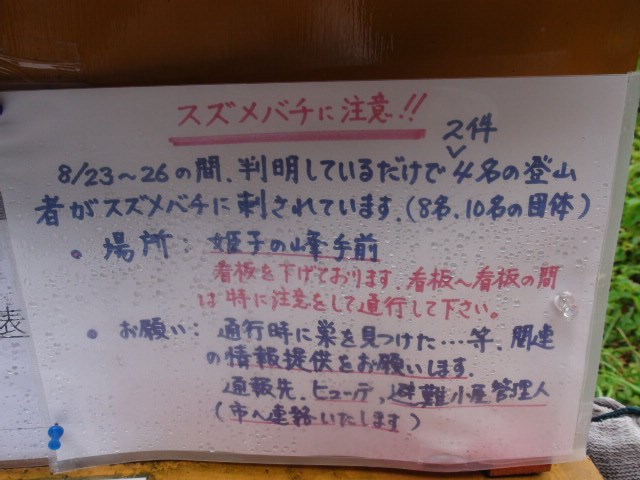 スズメバチに注意!!
2件
8/23～26の間、判明しているだけで4名の登山
者がスズメバチに刺されています。(8名、10名の団体)
・場所：姫子の峰手前
看板を下げております。看板～看板の間
は特に注意をして通行して下さい。
・お願い：通行時に巣を見つけた…等、関連
の情報提供をお願いします。
通報先、ヒュッテ、避難小屋管理人
(市へ連絡いたします)
表